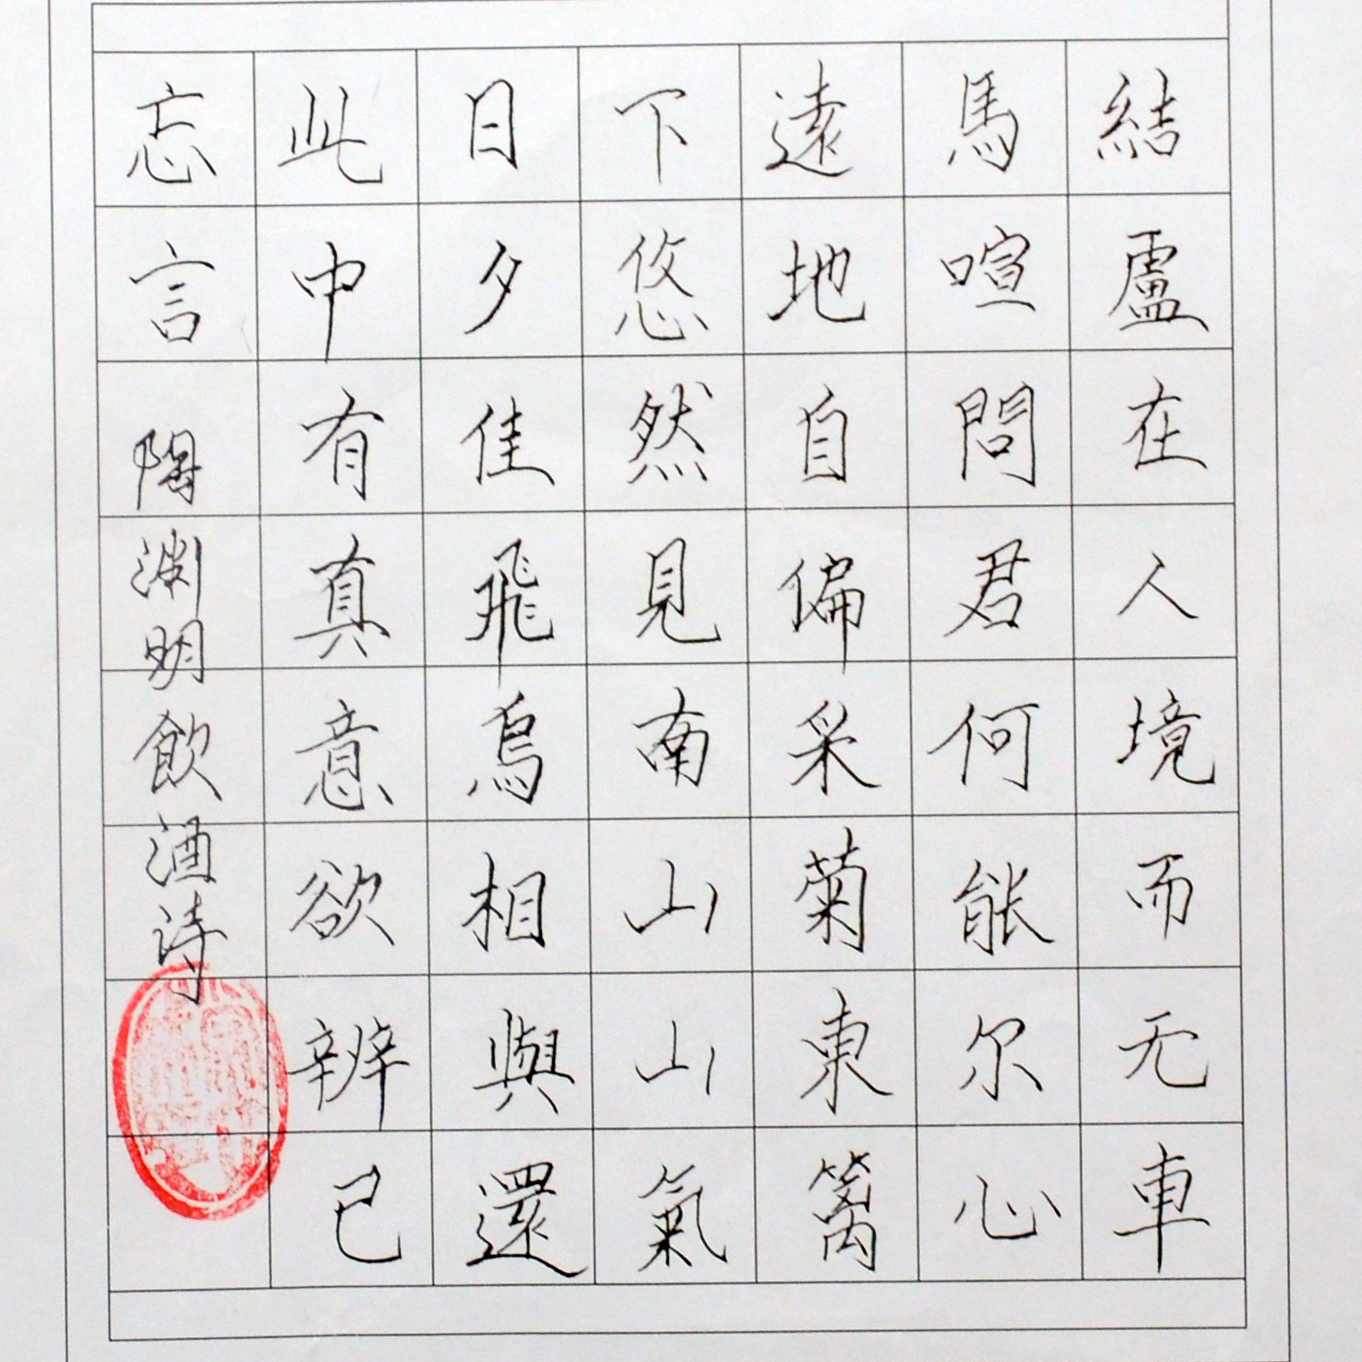 結盧在人境而无車
馬喧問君何能尔心
遠地自偏采菊東篱
下悠然見南山山氣
日夕佳飛鳥相與還
此中有真意欲辨已
忘言 陶渊明飲酒诗